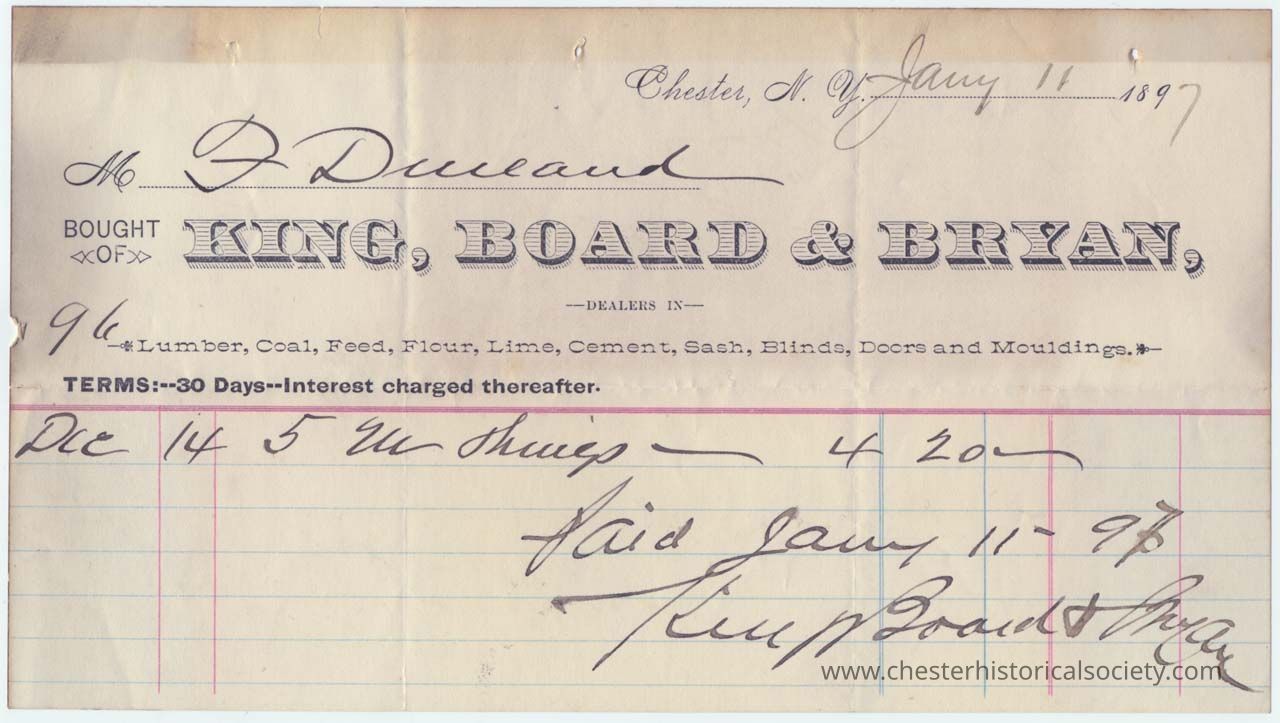 Chester, N. Y. Jany 11 1897
M F Durland
BOUGHT OF KING, BOARD & BRYAN,
—DEALERS IN—
96
Lumber, Coal, Feed, Flour, Lime, Cement, Sash, Blinds, Doors and Mouldings.
TERMS:--30 Days--Interest charged thereafter.
Dec 14 5 M Shings — 4 20
Paid Jany 11 - 97
King Board & Bryan
www.chesterhistoricalsociety.com